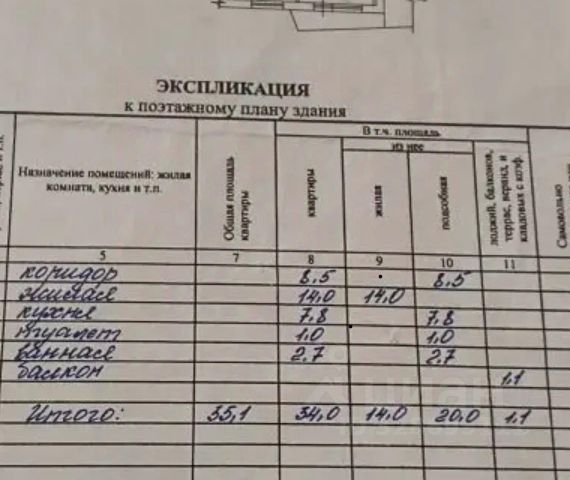 ЭКСПЛИКАЦИЯ
к поэтажному плану здания
Назначение помещений: жилая комнати, кухня и т.п.
Общая площадь квартиры
В т.ч. площадь
из нее
квартиры
жилая
подсобная
лоджий, балконов, террас, веранд, и кладовых с коэф.
Самовольно
5 7 8 9 10 11
коридор 8.5 8.5
жилая 14,0 14,0
кухня 7.8 7.8
туалет 1.0 1.0
ванная 2.7 2.7
балкон 1.1
Итого: 35,1 34,0 14,0 20,0 1.1
циан